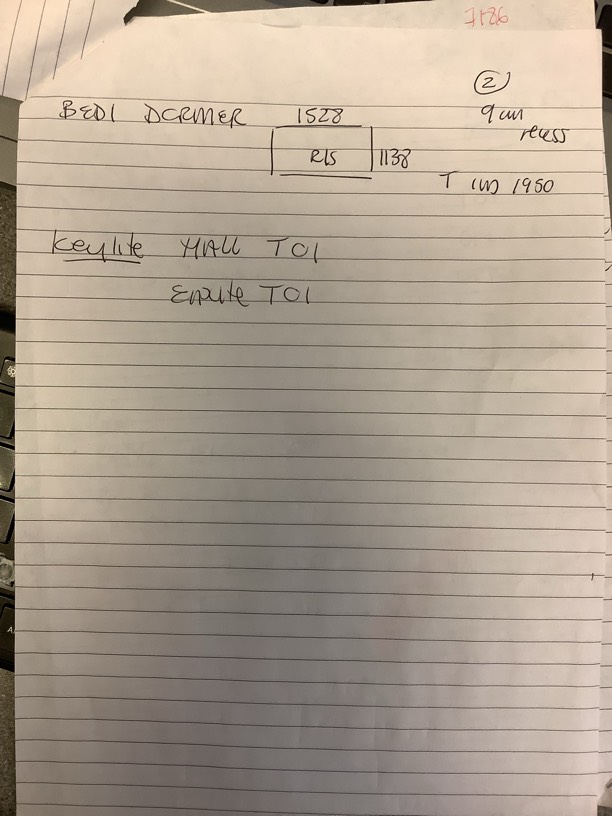 7186
②
BED1 DORMER 1528
9 cm
recess
R/S 1138
T cm 1950
Keylite HALL T01
Ensuite T01